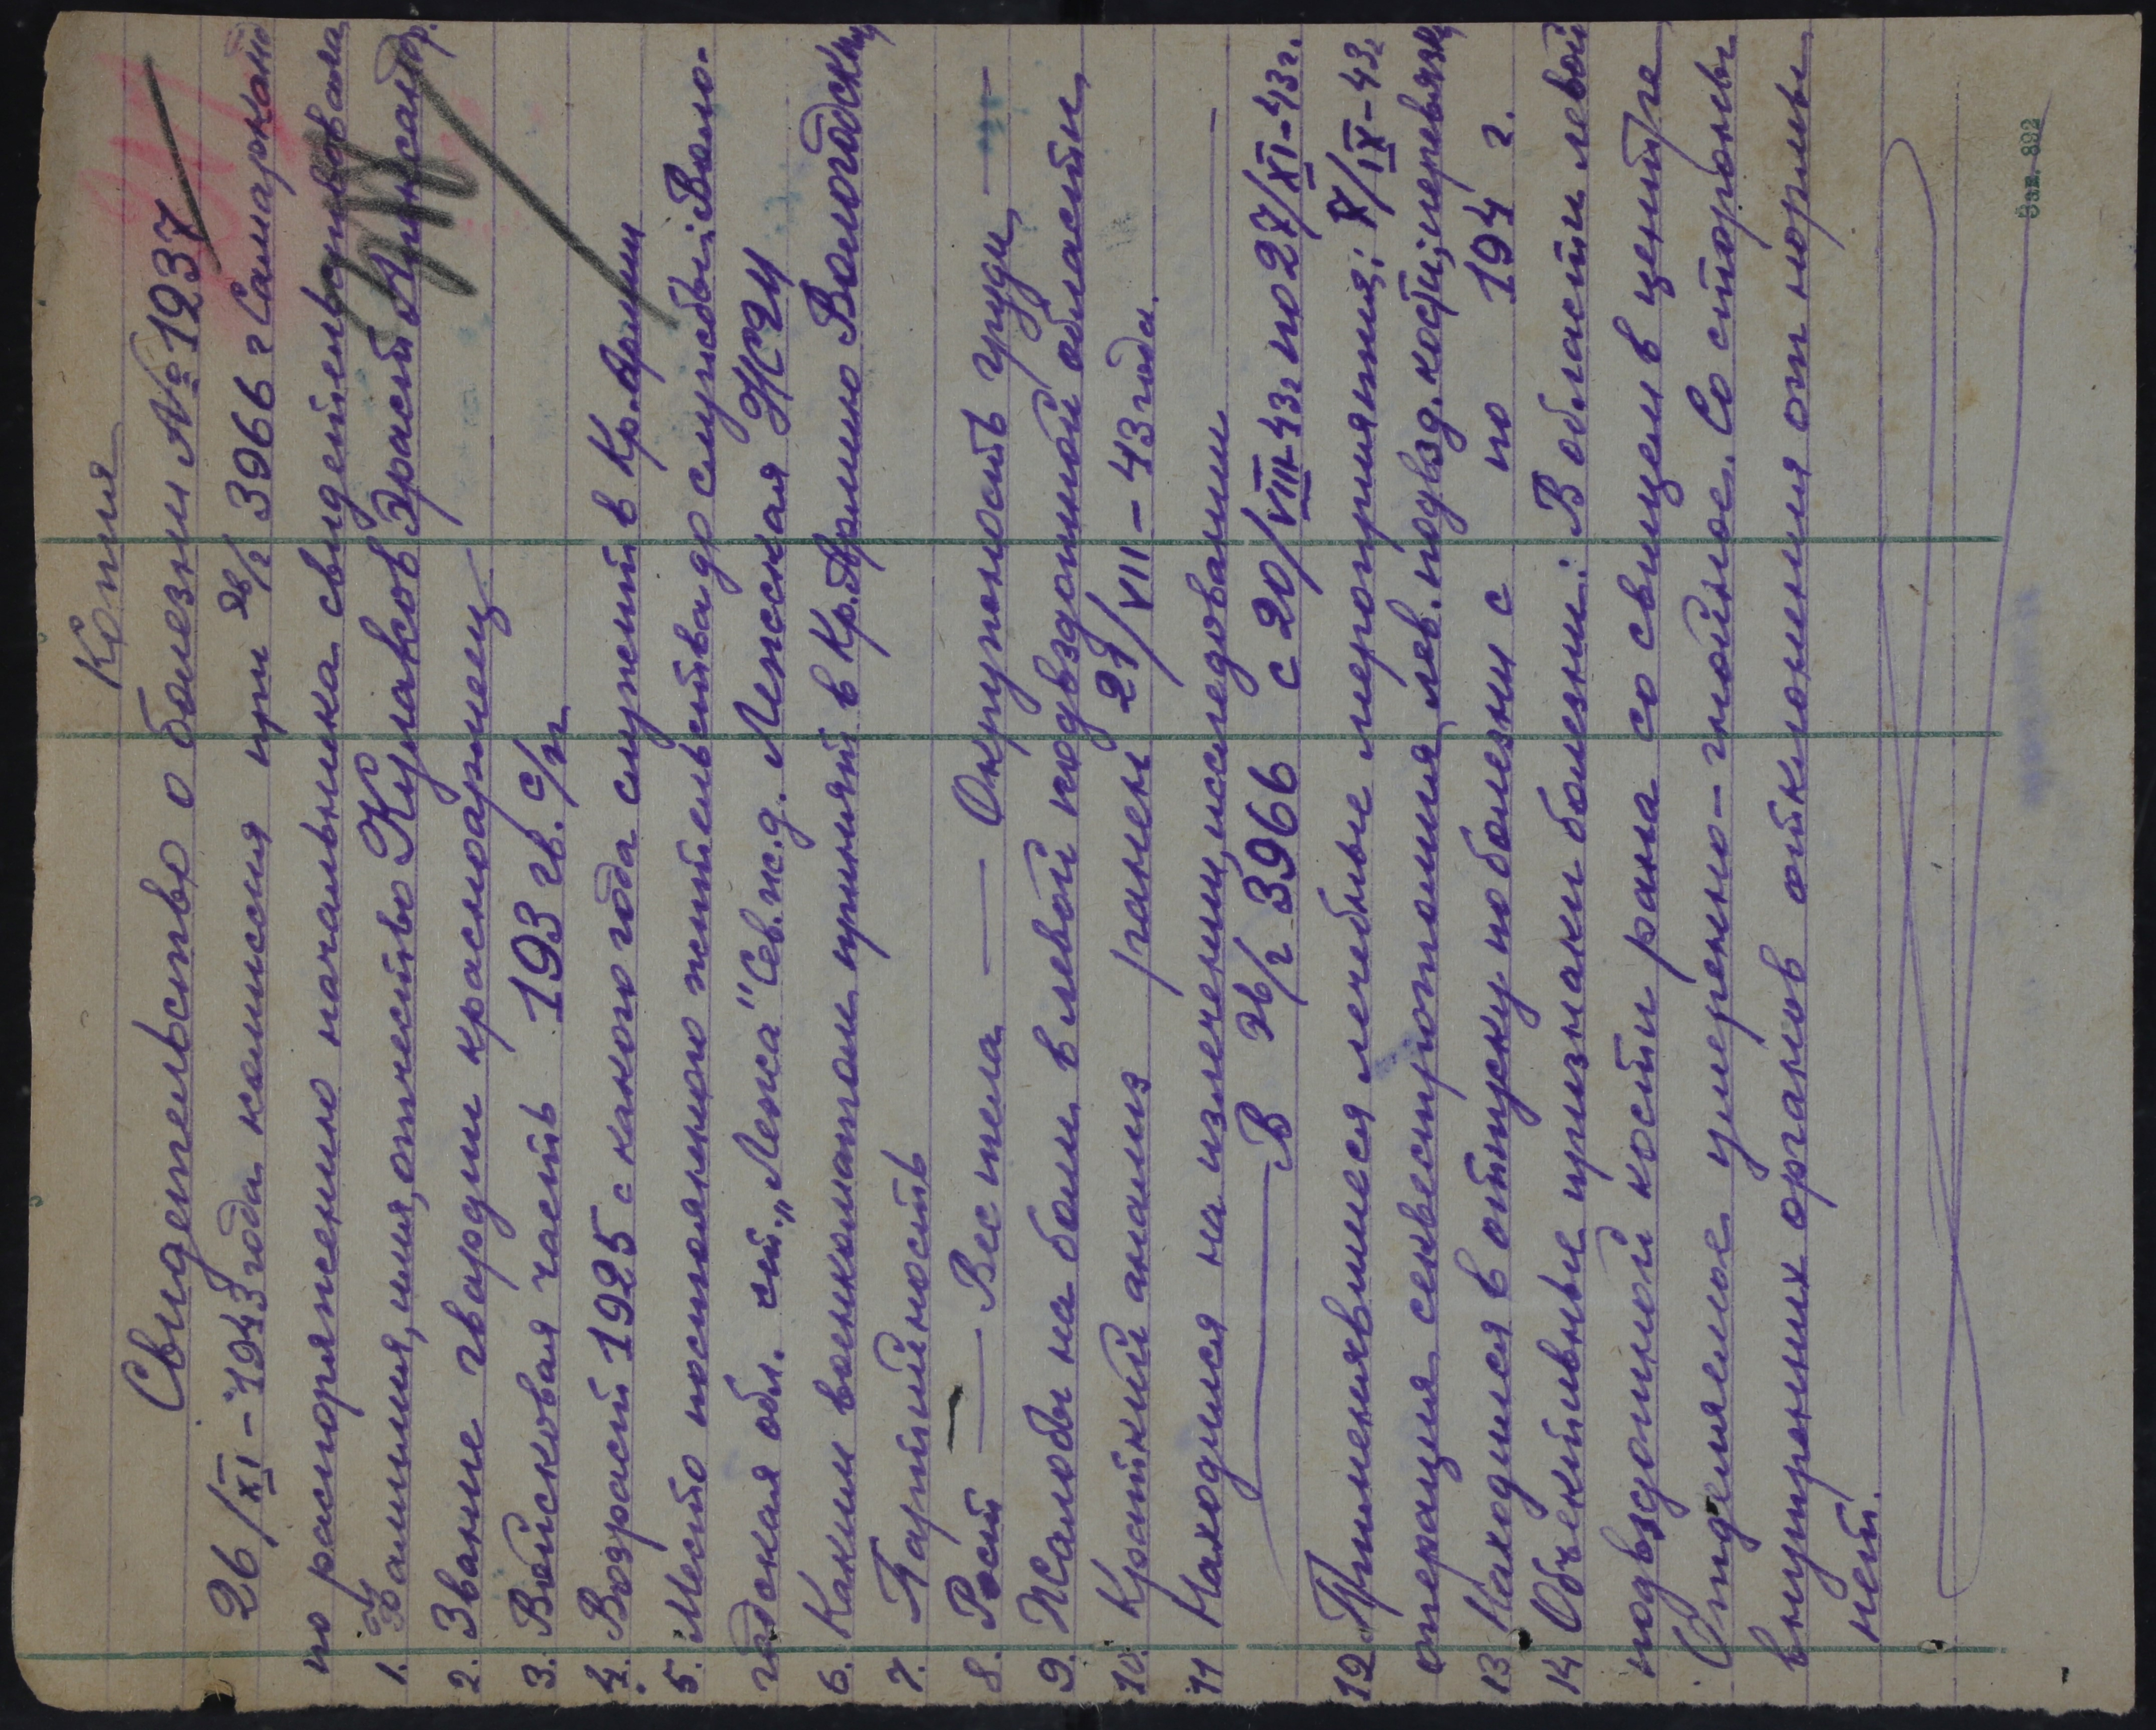 Копия
Свидетельство о болезни № 1237
26/XI-1943 года комиссия при эг/г 3966 г Самарканд
по распоряжению начальника свидетельствовала
1. Фамилия, имя, отчество Кулаков Эраст Александр.
2. Звание гвардии красноармеец
3. Войсковая часть 193 гв. с/п
4. Возраст 1925 с какого года служит в Кр. Армии
5. Место постоянного жительства до службы: Воло-
годская обл. ст. „Лежа" Сев. ж.д. Лежская
6. Каким военкоматом принят в Кр. Армию Вологодским
7. Партийность
8. Рост — Вес тела — Окружность груди —
9. Жалобы на боли в левой подвздошной области,
10. Краткий анамнез ранен 29/VII-43 года.
11 Находился на излечении, исследовании
— В эг/г 3966 с 20/VIII-43г по 27/XI-43г.
12. Применявшиеся лечебные мероприятия: X/IX-43г
операция секвестротомия лев. подвзд. кости, перевязки
13 Находился в отпуску по болезни с по 194 г.
14 Объективные признаки болезни: В области левой
подвздошной кости рана со свищем в центре
Отделяемое умеренно-гнойное. Со стороны
внутренних органов отклонения от нормы
нет.
Зак. 892